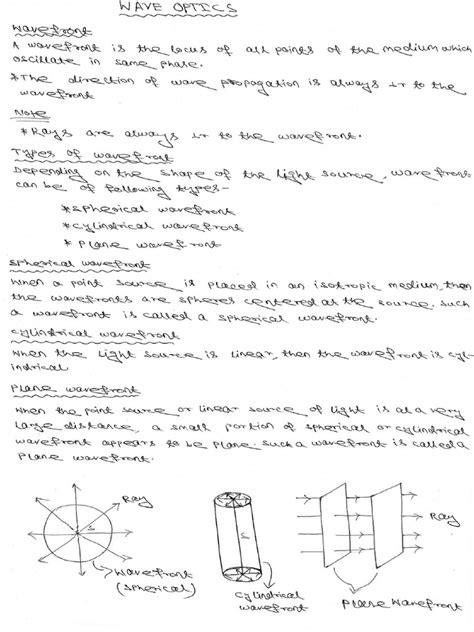 WAVE OPTICS
Wavefront
A wavefront is the locus of all points of the medium which
oscillate in same phase.
*The direction of wave propagation is always ⊥r to the
wavefront
Note
*Rays are always ⊥r to the wavefront.
Types of wavefront
Depending on the shape of the light source, wavefront
can be of following types-
*Spherical wavefront
*Cylindrical wavefront
* Plane wavefront
Spherical wavefront
When a point source is placed in an isotropic medium, then
the wavefronts are spheres centered at the source. Such
a wavefront is called a spherical wavefront.
Cylindrical wavefront
When the light source is linear, then the wavefront is cyl-
indrical
Plane wavefront
When the point source or linear source of light is at a very
large distance, a small portion of spherical or cylindrical
wavefront appears to be plane. Such a wavefront is called a
plane wavefront.
Ray
S
Wavefront
(spherical)
S
Cylindrical
wavefront
Ray
Plane Wavefront